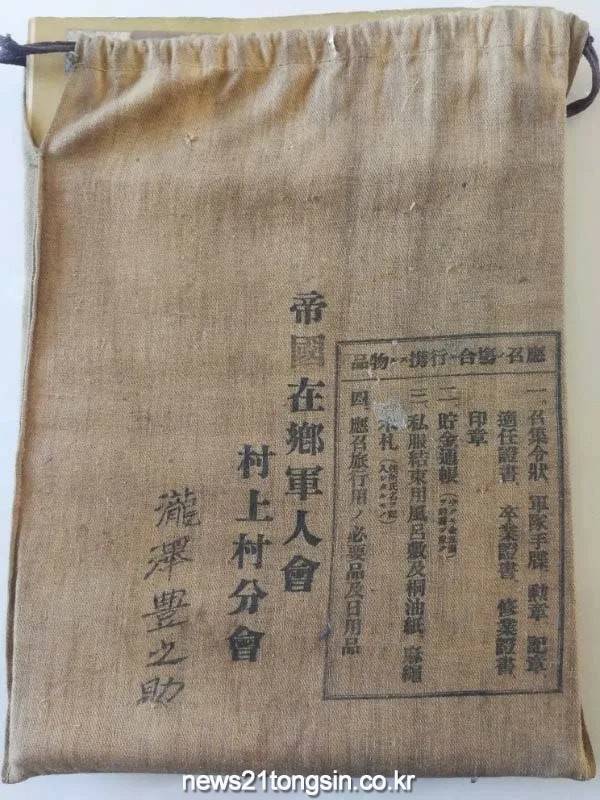 應召ノ場合ニ行携スル物品
一、召集令狀、軍隊手牒、勳章、記章、
適任證書、卒業證書、修業證書、
印章
二、貯金通帳
三、私服結束用風呂敷及桐油紙、麻繩
木札
四、應召旅行用ノ必要品及日用品
帝國在鄉軍人會
村上村分會
瀧澤豊之助
news21tongsin.co.kr